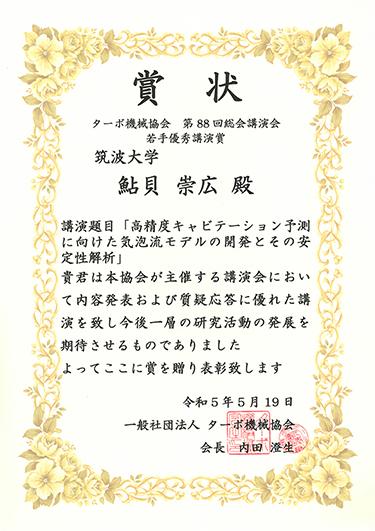 賞状
ターボ機械協会 第88回総会講演会
若手優秀講演賞
筑波大学
鮎貝 崇広 殿
講演題目「高精度キャビテーション予測
に向けた気泡流モデルの開発とその安
定性解析」
貴君は本協会が主催する講演会におい
て内容発表および質疑応答に優れた講
演を致し今後一層の研究活動の発展を
期待させるものでありました
よってここに賞を贈り表彰致します
令和5年5月19日
一般社団法人 ターボ機械協会
会長 内田 澄生